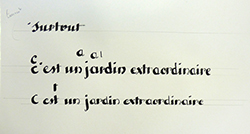 surtout
c a a i
c'est un jardin extraordinaire
r
C est un jardin extraordinaire